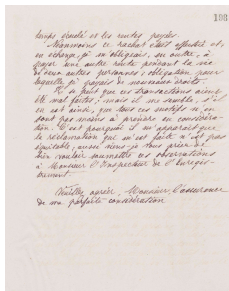 188
temps éludé et les rentes payées.
Néanmoins ce rachat était effectué et,
en échange, je m'obligeais, en outre, à
payer une autre rente pendant la vie
de deux autres personnes, obligation pour
laquelle je payais de nouveaux droits.
Il se peut que ces transactions aient
été mal faites, mais il me semble, s'il
en est ainsi, que tous ces motifs
sont pas moins à prendre en considéra-
tion. C'est pourquoi il m'apparaît que
la réclamation qui m'est faite n'est pas
équitable, aussi viens-je vous prier de
bien vouloir soumettre ces observations
à Monsieur l'Inspecteur de l'Enregis-
trement.
Veuillez agréer, Monsieur, l'assurance
de ma parfaite considération